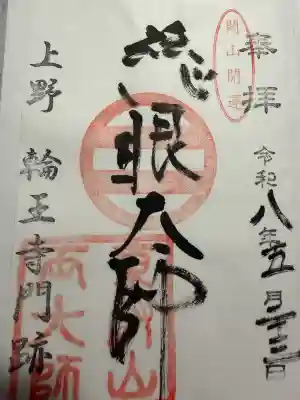 奉拝
開山開運
令和八年五月十三日
慈眼大師
上野 輪王寺門跡
山
両大師